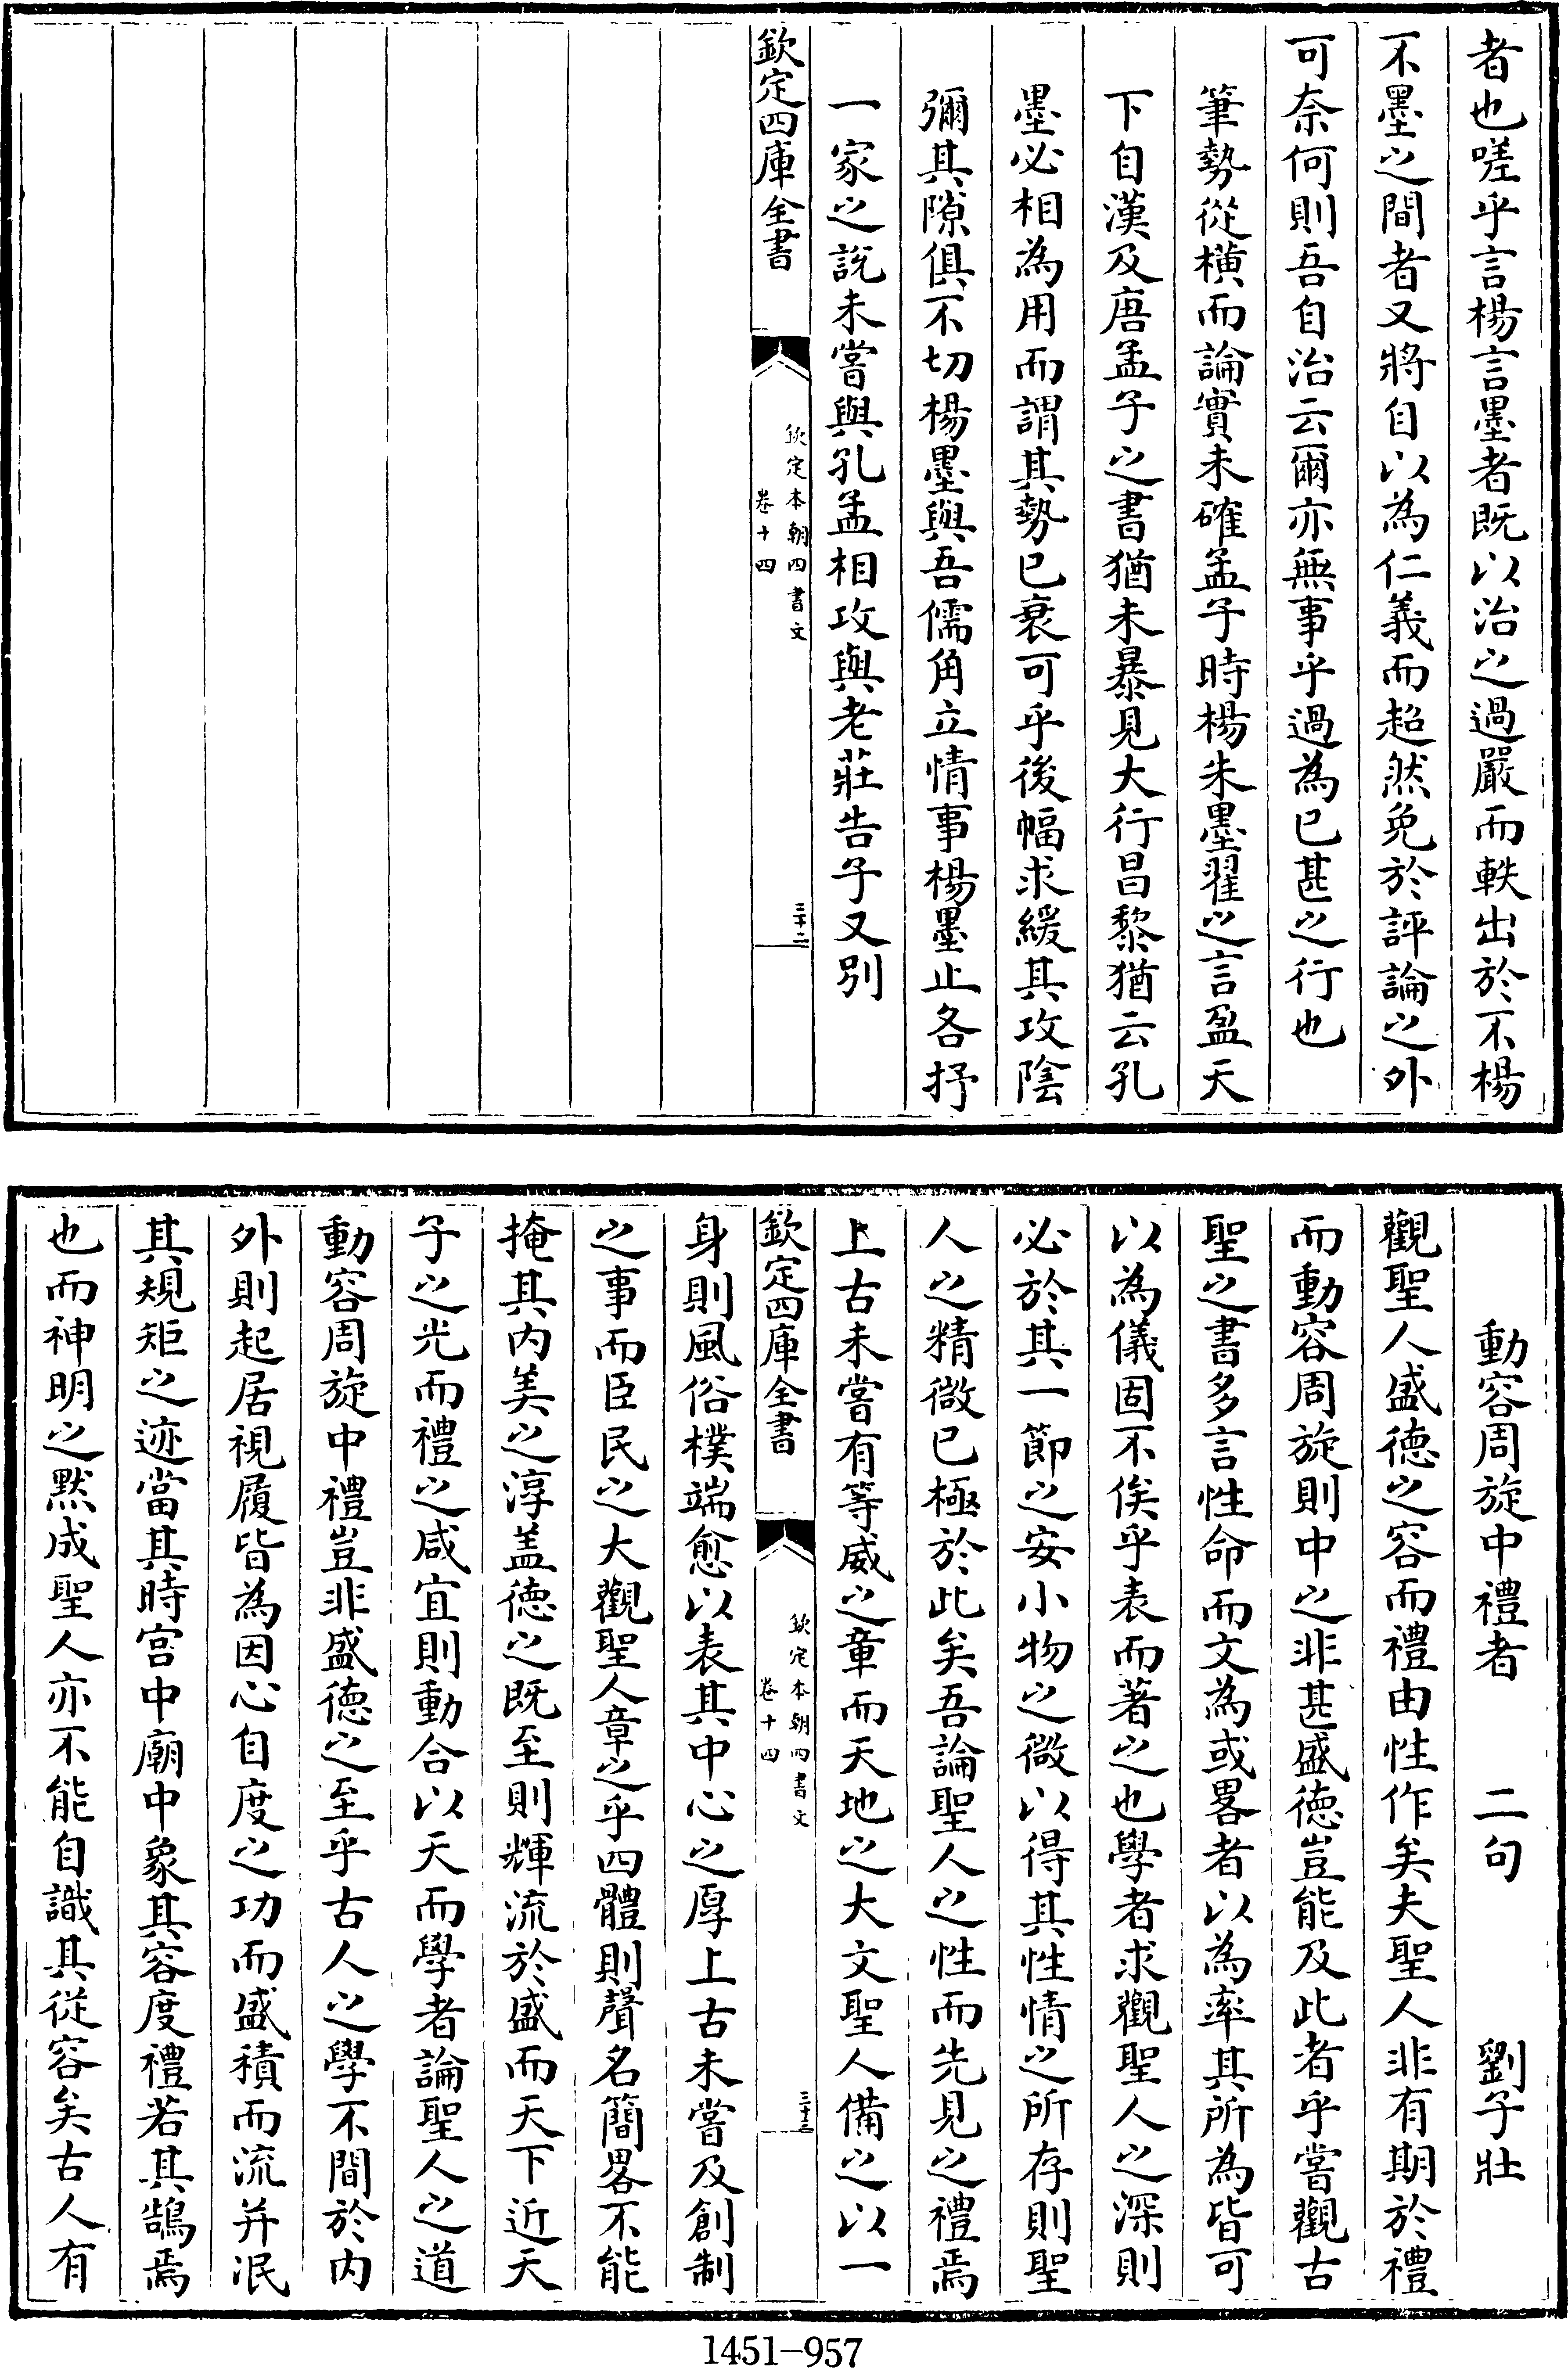 者也嗟乎言楊言墨者既以治之過嚴而軼出於不楊
不墨之間者又將自以為仁義而超然免於評論之外
可奈何則吾自治云爾亦無事乎過為已甚之行也
筆勢從橫而論實未確孟子時楊朱墨翟之言盈天
下自漢及唐孟子之書猶未暴見大行昌黎猶云孔
墨必相為用而謂其勢已衰可乎後幅求緩其攻陰
彌其隙俱不切楊墨與吾儒角立情事楊墨止各抒
一家之說未嘗與孔孟相攻與老莊告子又別
欽定四庫全書
欽定本朝四書文
卷十四
三十二
動容周旋中禮者 二句 劉子壯
觀聖人盛德之容而禮由性作矣夫聖人非有期於禮
而動容周旋則中之非甚盛德豈能及此者乎嘗觀古
聖之書多言性命而文為或畧者以為率其所為皆可
以為儀固不俟乎表而著之也學者求觀聖人之深則
必於其一節之安小物之微以得其性情之所存則聖
人之精微已極於此矣吾論聖人之性而先見之禮焉
上古未嘗有等威之章而天地之大文聖人備之以一
欽定四庫全書
欽定本朝四書文
卷十四
三十三
身則風俗樸端愈以表其中心之厚上古未嘗及創制
之事而臣民之大觀聖人章之乎四體則聲名簡畧不能
掩其内美之淳盖德之既至則輝流於盛而天下近天
子之光而禮之咸宜則動合以天而學者論聖人之道
動容周旋中禮豈非盛德之至乎古人之學不間於内
外則起居視履皆為因心自度之功而盛積而流并泯
其規矩之迹當其時宫中廟中象其容度禮若其鵠焉
也而神明之默成聖人亦不能自識其從容矣古人有
1451-957